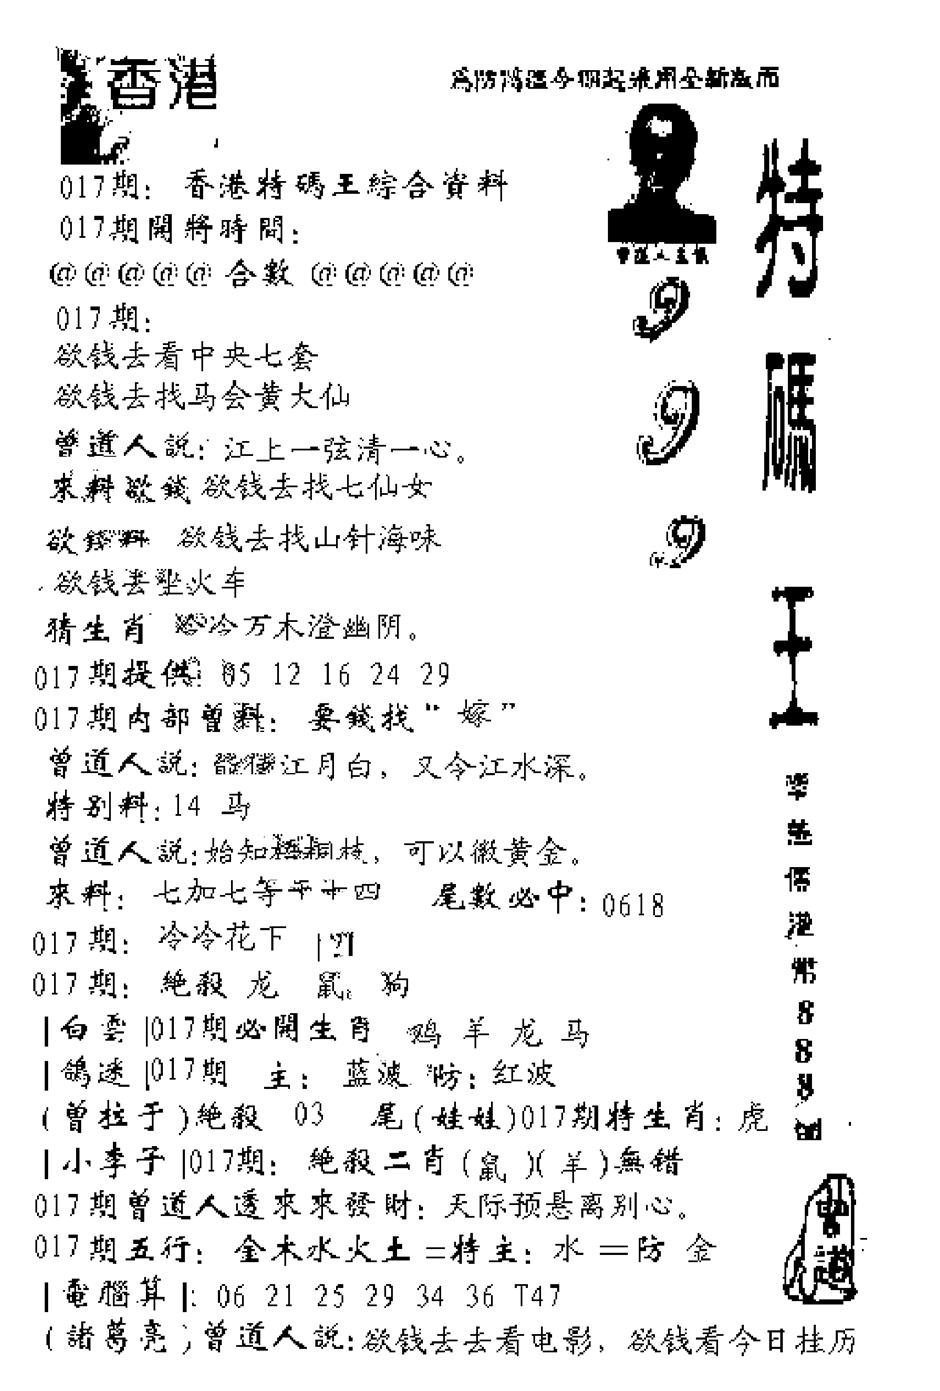 香港
為防濫今期起采用全新版面
017期： 香港特碼王綜合資料
017期開將時間：
@@@@@ 合數 @@@@@
017期：
欲钱去看中央七套
欲钱去找马会黄大仙
曾道人説：江上一弦清一心。
來料欲錢 欲钱去找七仙女
欲錢料 欲钱去找山针海味
欲钱去坐火车
猜生肖 冷万木澄幽阴。
017期提供：05 12 16 24 29
017期内部曾料： 要錢找“嫁”
曾道人説：江月白，又令江水深。
特别料：14 马
曾道人説：始知桐枝，可以徽黄金。
來料： 七加七等于十四 尾數必中：0618
017期： 冷冷花下
017期： 絶殺 龙 鼠 狗
|白雲|017期必開生肖 鸡 羊 龙 马
|鴿迷|017期 主： 蓝波 防：红波
(曾拉于)絶殺 03 尾(娃娃)017期特生肖：虎
|小李子|017期： 絶殺二肖(鼠)(羊)無错
017期曾道人透來來發財：天际预悬离别心。
017期五行： 金木水火土=特主：水=防 金
|電腦算|：06 21 25 29 34 36 T47
(諸葛亮)曾道人説：欲钱去去看电影，欲钱看今日挂历
曾道人
999
特碼王
港幣888
曾道